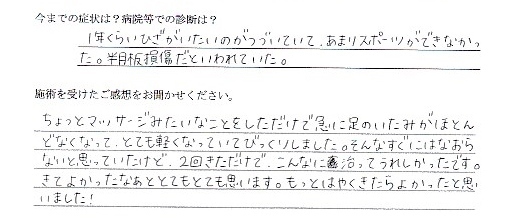 今までの症状は？病院等での診断は？
1年くらいひざがいたいのがつづいていて、あまりスポーツができなかっ
た。半月板損傷だといわれていた。
施術を受けたご感想をお聞かせください。
ちょっとマッサージみたいなことをしただけで急に足のいたみがほとん
どなくなって、とても軽くなっていてびっくりしました。そんなすぐにはなおら
ないと思っていたけど、2回きただけで、こんなに治ってうれしかったです。
きてよかったなあととてもとても思います。もっとはやくきたらよかったと思
いました！